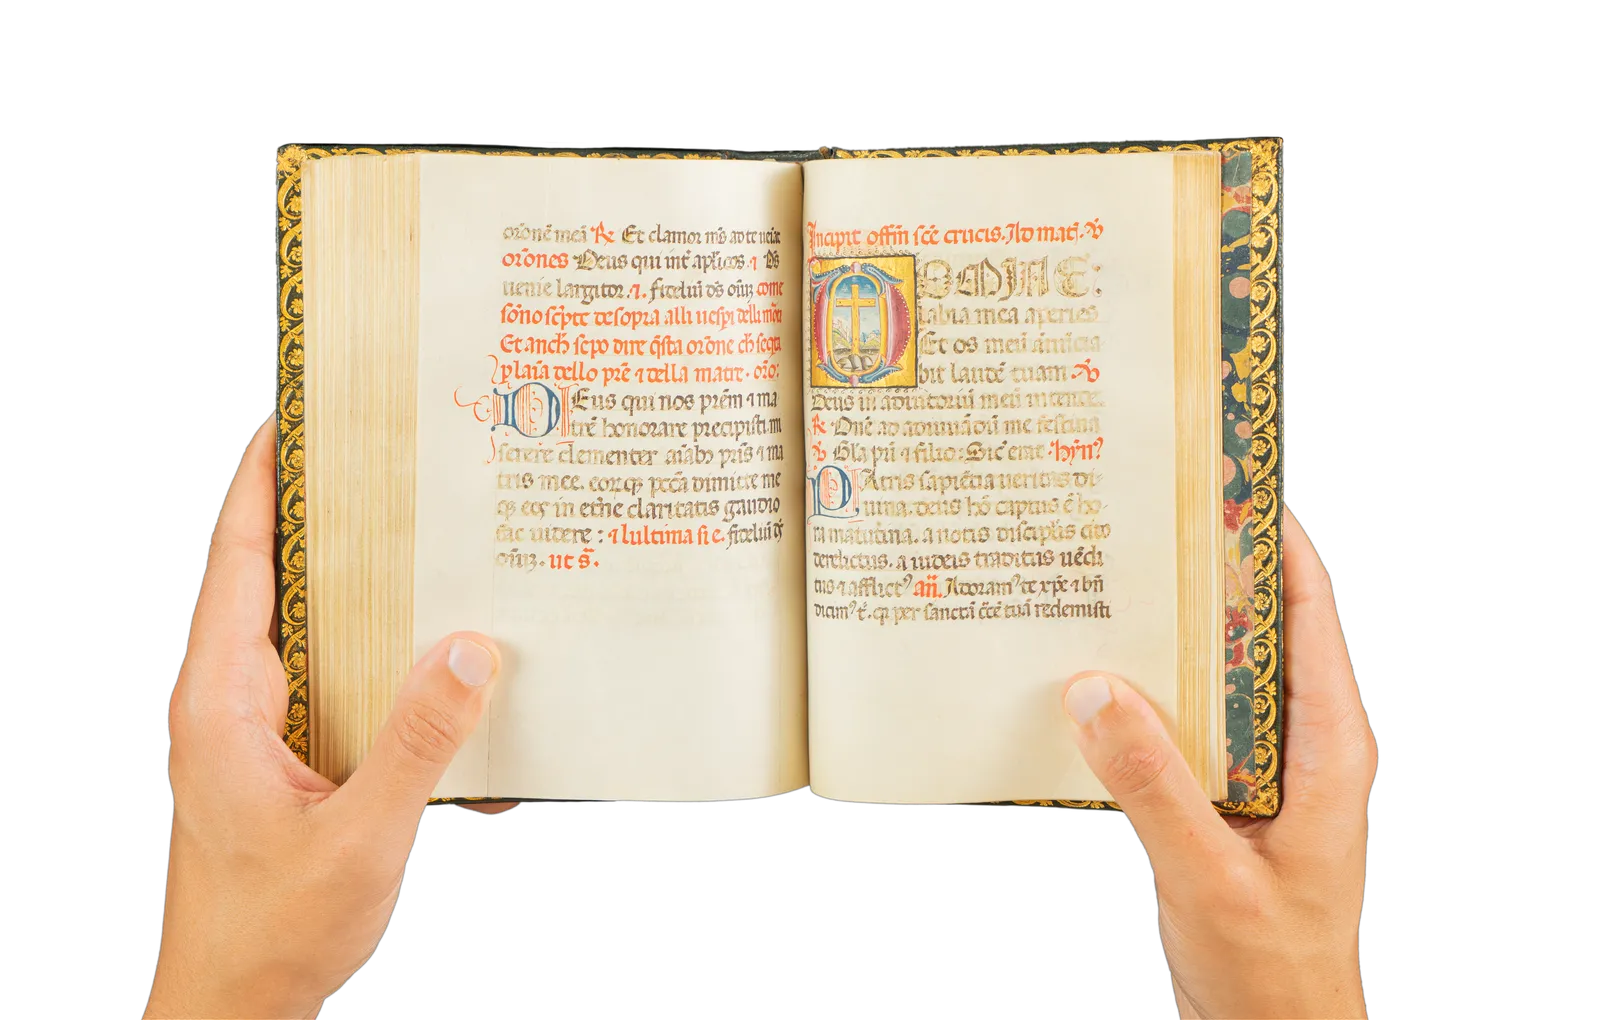 or̄onē meā ℟ Et clamor ms̄ ad te ueiat
or̄ones Deus qui int̄ aplicos. ⁊ Ds̄
uenie largitor. ⁊. fideliū ds̄ oīuꝫ come
sono sc̄pte desopra alli uesp̄i delli mōti
Et anch̄ sepo dire q̄sta or̄one ch̄ seq̄ta
p laīa dello pr̄e ⁊ della matre. or̄o:
DEus qui nos pr̄em ⁊ ma
trē honorare precipisti mi
serere clementer aīabꝫ pr̄is ⁊ ma
tris mee. eorꝗ pcc̄a dimitte me
ꝗ eos in etn̄e claritatis gaudio
fac uidere : ⁊ lultima si e. fideliū ds̄
oīuꝫ. ut s̄.
Incipit offm̄ sc̄e crucis. Ad mat̄. ℣
DOMINE:
labia mea aperies
Et os meū ānūcia
bit laudē tuam ℣
Deus in adiutoriū meū intende.
℟ Dn̄e ad adiuuādū me festina
℣ Gla pr̄i ⁊ filio: Sic̄ erat. hynꝰ
PAtris sapiētia ueritas di-
uina. deus hō captus ē ho-
ra matutina. a notis discipl̄is cito
derelictus. a iudeis traditus uēdi
tus ⁊ afflictꝰ an̄. Adoramꝰ te xp̄e ⁊ bn̄
dicimꝰ t̄. ꝗ per sanctā cc̄e tuā redemisti